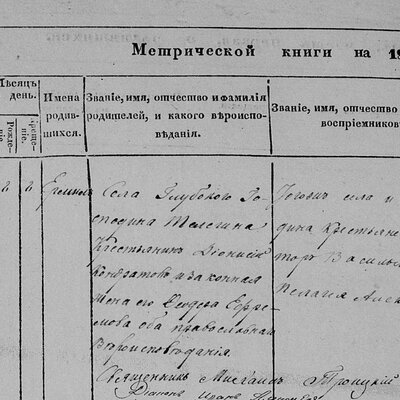 Метрической книги на 19
Мѣсяцъ день.
Рожде-ніе.
Креще-ніе.
Имена родив-шихся.
Званіе, имя, отчество и фамилія родителей, и какого вѣроиспо-вѣданія.
Званіе, имя, отчество
воспріемников
2 2
Села Глубокого Го-
сподина Телегина
Крестьянинъ Діонисій
Кондратовъ и законная
жена его Феодора Ефре-
мова оба православнаго
Вѣроисповѣданія.
села и
дина Крестьяне
торъ Василье
Пелагія Алек
Священникъ Михаилъ Троицкій